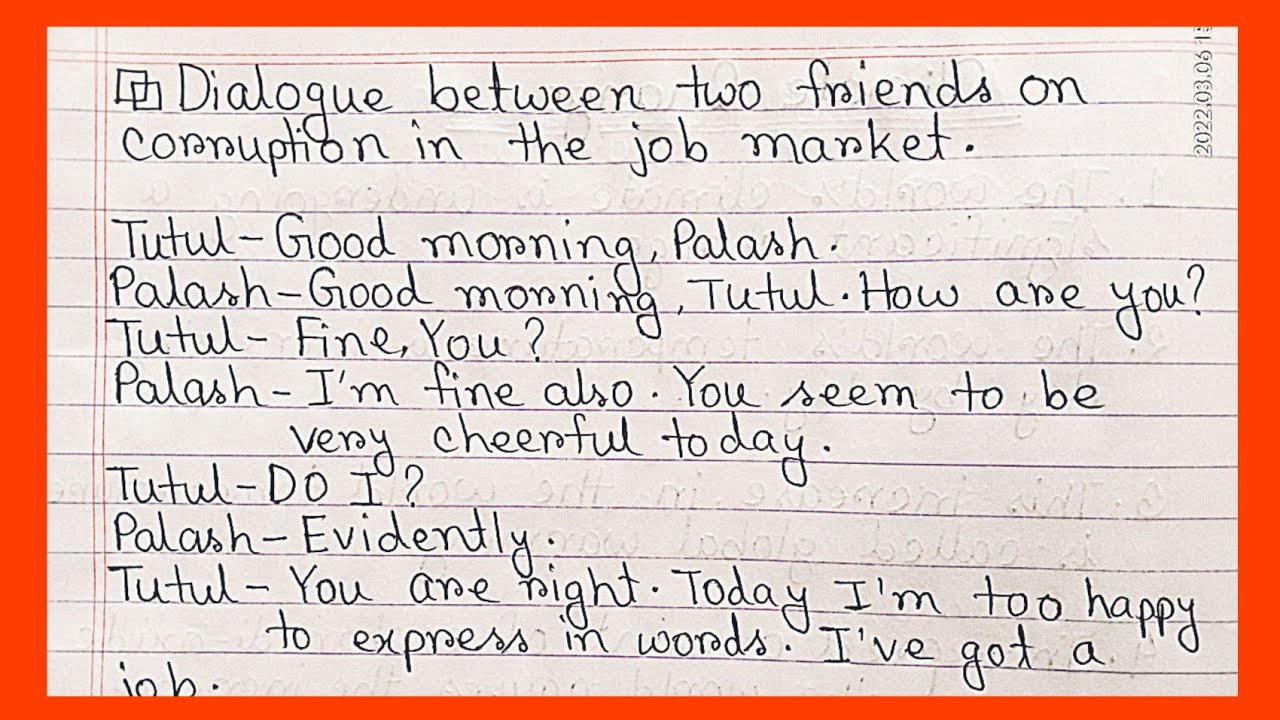 Dialogue between two friends on
corruption in the job market.
Tutul-Good morning, Palash.
Palash-Good morning, Tutul. How are you?
Tutul- Fine, You?
Palash- I'm fine also. You seem to be
very cheerful today.
Tutul-Do I?
Palash- Evidently.
Tutul- You are right. Today I'm too happy
to express in words. I've got a
job.